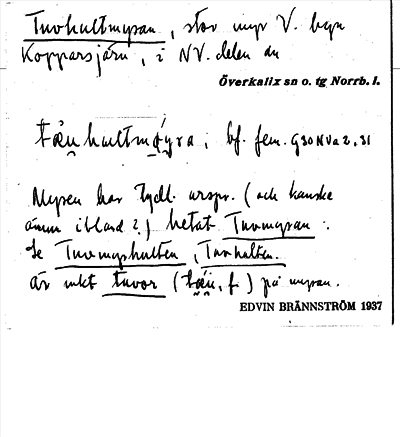 Tuvhultmyran, stor myr V. byn
Kopparsjärn, i NV. delen av
Överkalix sn o. tg Norrb. l.
bf. fem. G30NVa2,31
Myren har tydl. urspr. (och kanske
ännu ibland?) hetat Tuvmyran.
Se Tuvmyrhulten, Tuvhulten.
är mkt tuvor ( , f.) på myran.
EDVIN BRÄNNSTRÖM 1937